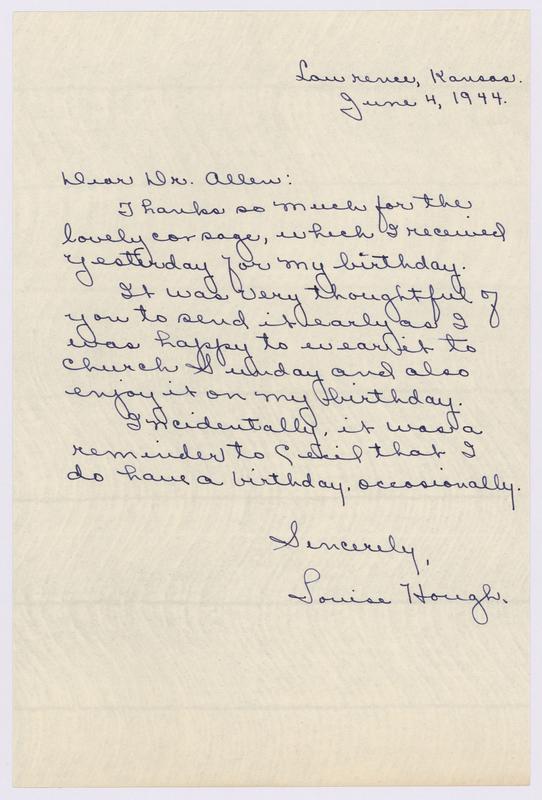 Lawrence, Kansas.
June 4, 1944.
Dear Dr. Allen:
Thanks so much for the
lovely corsage, which I received
yesterday for my birthday.
It was very thoughtful of
you to send it early as I
was happy to wear it to
church Sunday and also
enjoy it on my birthday.
Incidentally, it was a
reminder to Cecil that I
do have a birthday, occasionally.
Sincerely,
Louise Hough.